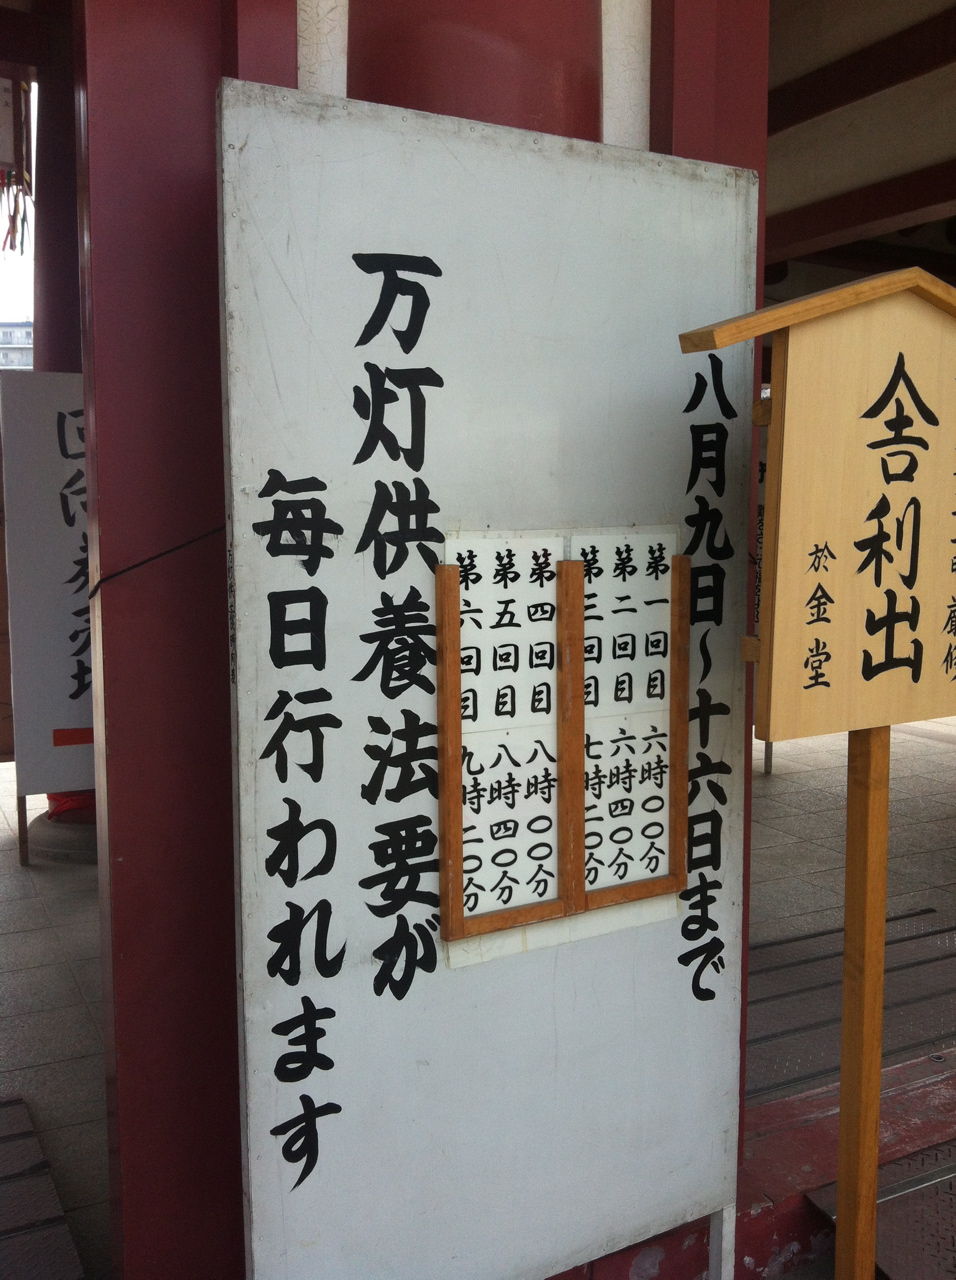 八月九日~十六日まで
第一回目 六時〇〇分
第二回目 六時四〇分
第三回目 七時二〇分
第四回目 八時〇〇分
第五回目 八時四〇分
第六回目 九時二〇分
万灯供養法要が
毎日行われます
舎利出
於金堂